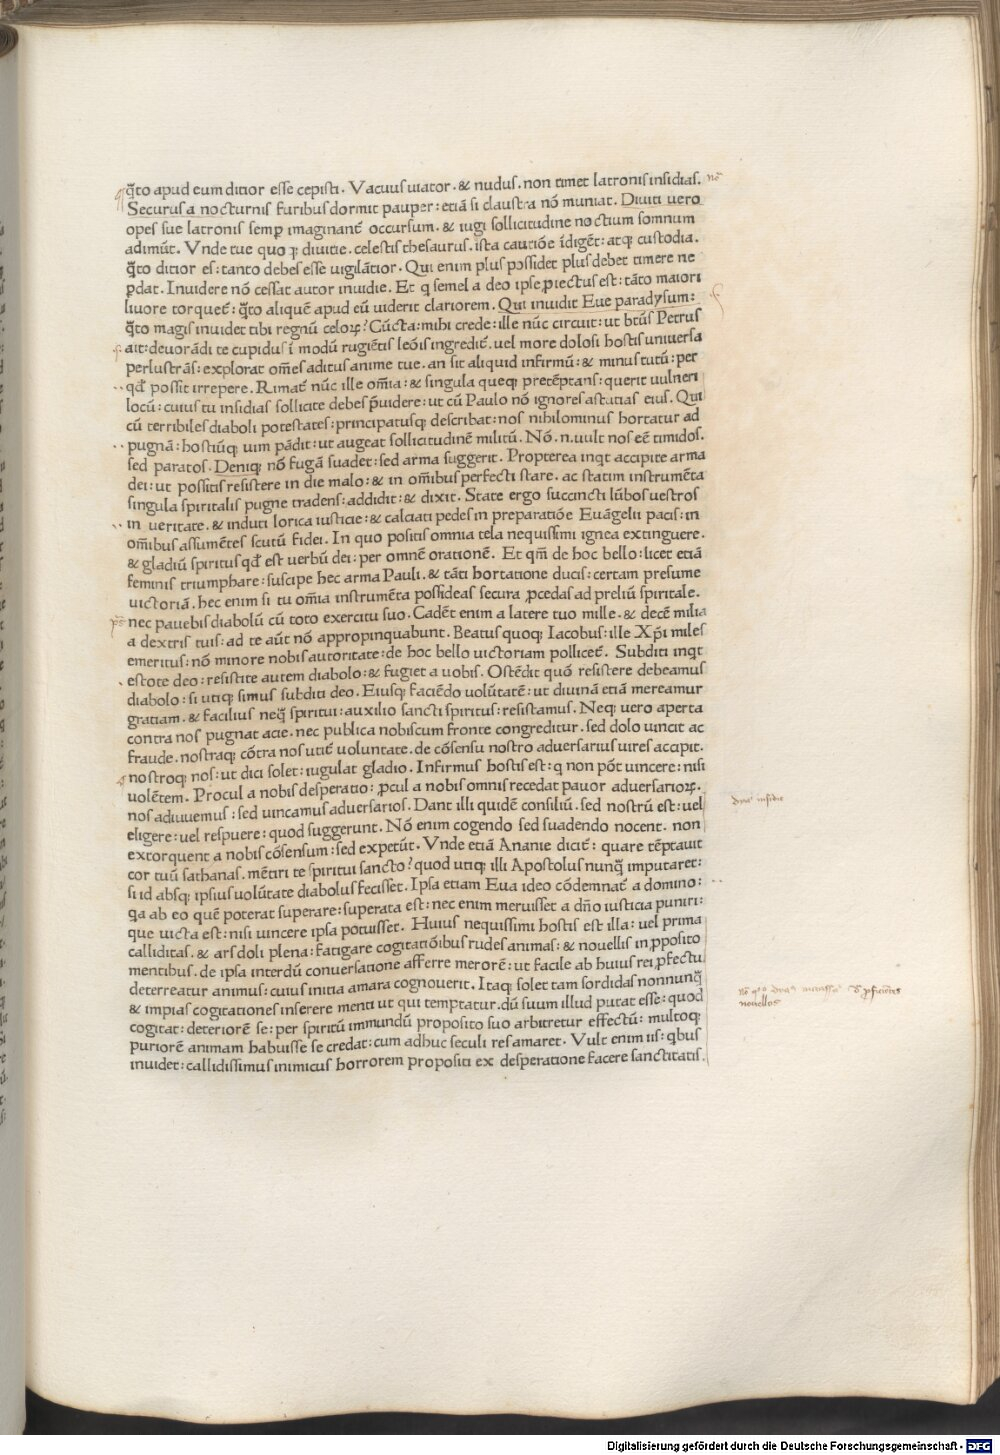 q̃to apud eum ditior esse cepisti. Vacuus uiator. & nudus. non timet latronis insidias.
Securus a nocturnis furibus dormit pauper: etiã si claustra nõ muniat. Diuiti uero
opes sue latronis semp̱ imaginant̃ occursum. & iugi sollicitudine noctium somnum
adimũt. Vnde tue quo q̃ diuitie. celestis thesaurus. ista cautiõe ĩdigẽt: atq; custodia.
q̃to ditior es: tanto debes esse uigilãtior. Qui enim plus possidet plus debet timere ne
p̱dat. Inuidere nõ cessat autor inuidie. Et q semel a deo ipse p̱iectus est: tãto maiori
liuore torquet̃: q̃to aliquẽ apud eũ uiderit clariorem. Qui inuidit Eue paradysum:
q̃to magis inuidet tibi regnũ celoꝝ? Cũcta: mihi crede: ille nũc circuit: ut btũs Petrus
ait: deuorãdi te cupidus ĩ modũ rugiẽtis leõis ingredit̃. uel more dolosi hostis uniuersa
perlustrãs: explorat om̃es aditus anime tue. an sit aliquid infirmũ: & minus tutũ: per
qd̃ possit irrepere. Rimat̃ nũc ille om̃ia: & singula queq; pretẽptans: querit uulneri
locũ: cuius tu insidias sollicite debes p̃uidere: ut cũ Paulo nõ ignores astutias eius. Qui
cũ terribiles diaboli potestates: principatusq; describat: nos nihilominus hortatur ad
pugnã: hostiũq; uim pãdit: ut augeat sollicitudinẽ militũ. Nõ .n. uult nos eẽ timidos.
sed paratos. Deniq; nõ fugã suadet: sed arma suggerit. Propterea inqt accipite arma
dei: ut possitis resistere in die malo: & in om̃ibus perfecti stare. ac statim instrumẽta
singula spiritalis pugne tradens: addidit: & dixit. State ergo succincti lũbos uestros
in ueritate. & induti lorica iusticie: & calciati pedes in preparatiõe Euãgelii pacis: in
om̃ibus assumẽtes scutũ fidei. In quo positis omnia tela nequissimi ignea extinguere.
& gladiũ spiritus qd̃ est uerbũ dei: per omnẽ orationẽ. Et qm̃ de hoc bello: licet etiã
feminis triumphare: suscipe hec arma Pauli. & tãti hortatione ducis: certam presume
uictoriã. hec enim si tu om̃ia instrumẽta possideas secura p̱cedas ad preliũ spiritale.
nec pauebis diabolũ cũ toto exercitu suo. Cadẽt enim a latere tuo mille. & decẽ milia
a dextris tuis: ad te aũt nõ appropinquabunt. Beatus quoq; Iacobus: ille Xp̃i miles
emeritus: nõ minore nobis autoritate: de hoc bello uictoriam pollicet̃. Subditi inqt
estote deo: resistite autem diabolo: & fugiet a uobis. Ostẽdit quõ resistere debeamus
diabolo: si utiq; simus subditi deo. Eiusq; faciẽdo uolũtatẽ: ut diuinã etiã mereamur
gratiam. & facilius neq̃ spiritui: auxilio sancti spiritus: resistamus. Neq; uero aperta
contra nos pugnat acie. nec publica nobiscum fronte congreditur. sed dolo uincit ac
fraude. nostraq; cõtra nos utit̃ uoluntate. de cõsensu nostro aduersarius uires accipit.
nostroq; nos: ut dici solet: iugulat gladio. Infirmus hostis est: q non põt uincere: nisi
uolẽtem. Procul a nobis desperatio: p̱cul a nobis omnis recedat pauor aduersarioꝝ.
nos adiuuemus: sed uincamus aduersarios. Dant illi quidẽ consiliũ. sed nostrũ est: uel
eligere: uel respuere: quod suggerunt. Nõ enim cogendo sed suadendo nocent. non
extorquent a nobis cõsensum: sed expetũt. Vnde etiã Ananie dicit̃: quare tẽptauit
cor tuũ sathanas. mẽtiri te spiritui sancto? quod utiq; illi Apostolus nunq̃ imputaret:
si id absq; ipsius uolũtate diabolus fecisset. Ipsa etiam Eua ideo cõdemnat̃ a domino:
qa ab eo quẽ poterat superare: superata est: nec enim meruisset a dño iusticia puniri:
que uicta est: nisi uincere ipsa potuisset. Huius nequissimi hostis est illa: uel prima
calliditas. & ars doli plena: fatigare cogitatiõibus rudes animas: & nouellis in p̱posito
mentibus. de ipsa interdũ conuersatione afferre merorẽ: ut facile ab huius rei p̱fectu
deterreatur animus: cuius initia amara cognouerit. Itaq; solet tam sordidas nonnunq̃
& impias cogitationes inserere menti ut qui temptatur. dũ suum illud putat esse: quod
cogitat: deteriorẽ se: per spiritũ immundũ proposito suo arbitretur effectũ: multoq;
puriorẽ animam habuisse se credat: cum adhuc seculi res amaret. Vult enim iis: qbus
inuidet: callidissimus inimicus horrorem propositi ex desperatione facere sanctitatis.
nouellos
Digitalisierung gefördert durch die Deutsche Forschungsgemeinschaft - DFG